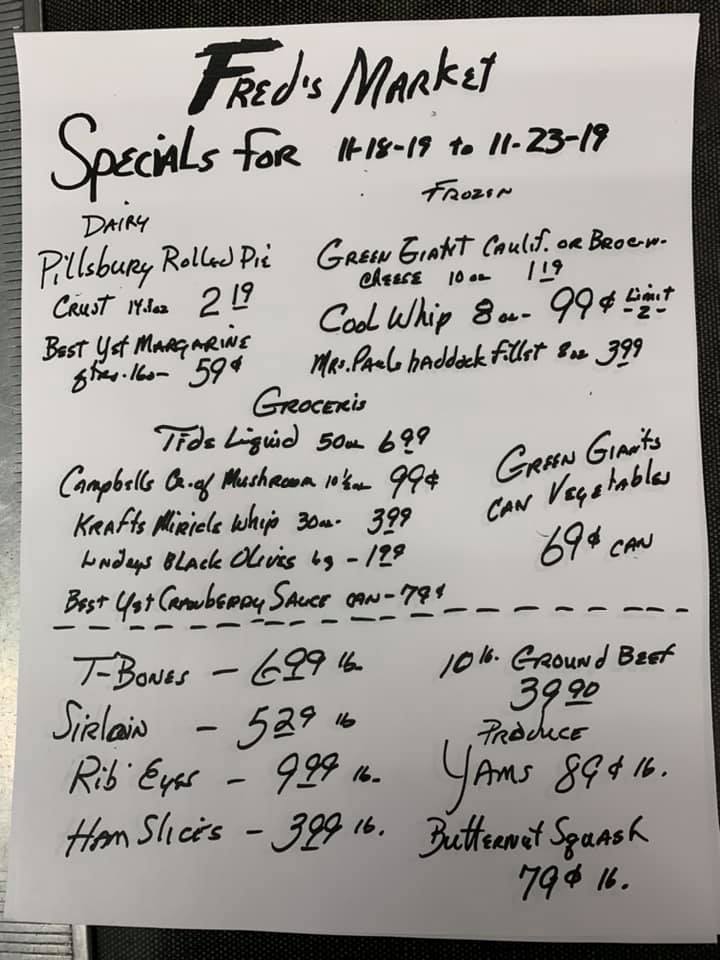 Fred's Market
Specials for 11-18-19 to 11-23-19
Dairy
Pillsbury Rolled Pie
Crust 14.1oz 2 19
Best Yet Margarine
qtrs. 1lb - 59¢
Frozen
Green Giant Caulif. or Broc-w-
cheese 10 oz 1 19
Cool Whip 8 oz - 99¢ Limit
-2-
Mrs. Pauls haddock fillet 8oz 3.99
Groceris
Tide Liquid 50oz 6 99
Campbells Cr. of Mushroom 10½oz 99¢
Krafts Miricle Whip 30oz. 3 99
Lindays Black Olives 6oz - 1 99
Best Yet Cranberry Sauce can - 79¢
Green Giants
can Vegetables
69¢ can
T-Bones - 6 99 lb.
Sirloin - 5 29 lb
Rib Eyes - 9 99 lb.
Ham Slices - 3 99 lb.
10 lb. Ground Beef
39 90
Produce
Yams 89¢ lb.
Butternut Squash
79¢ lb.